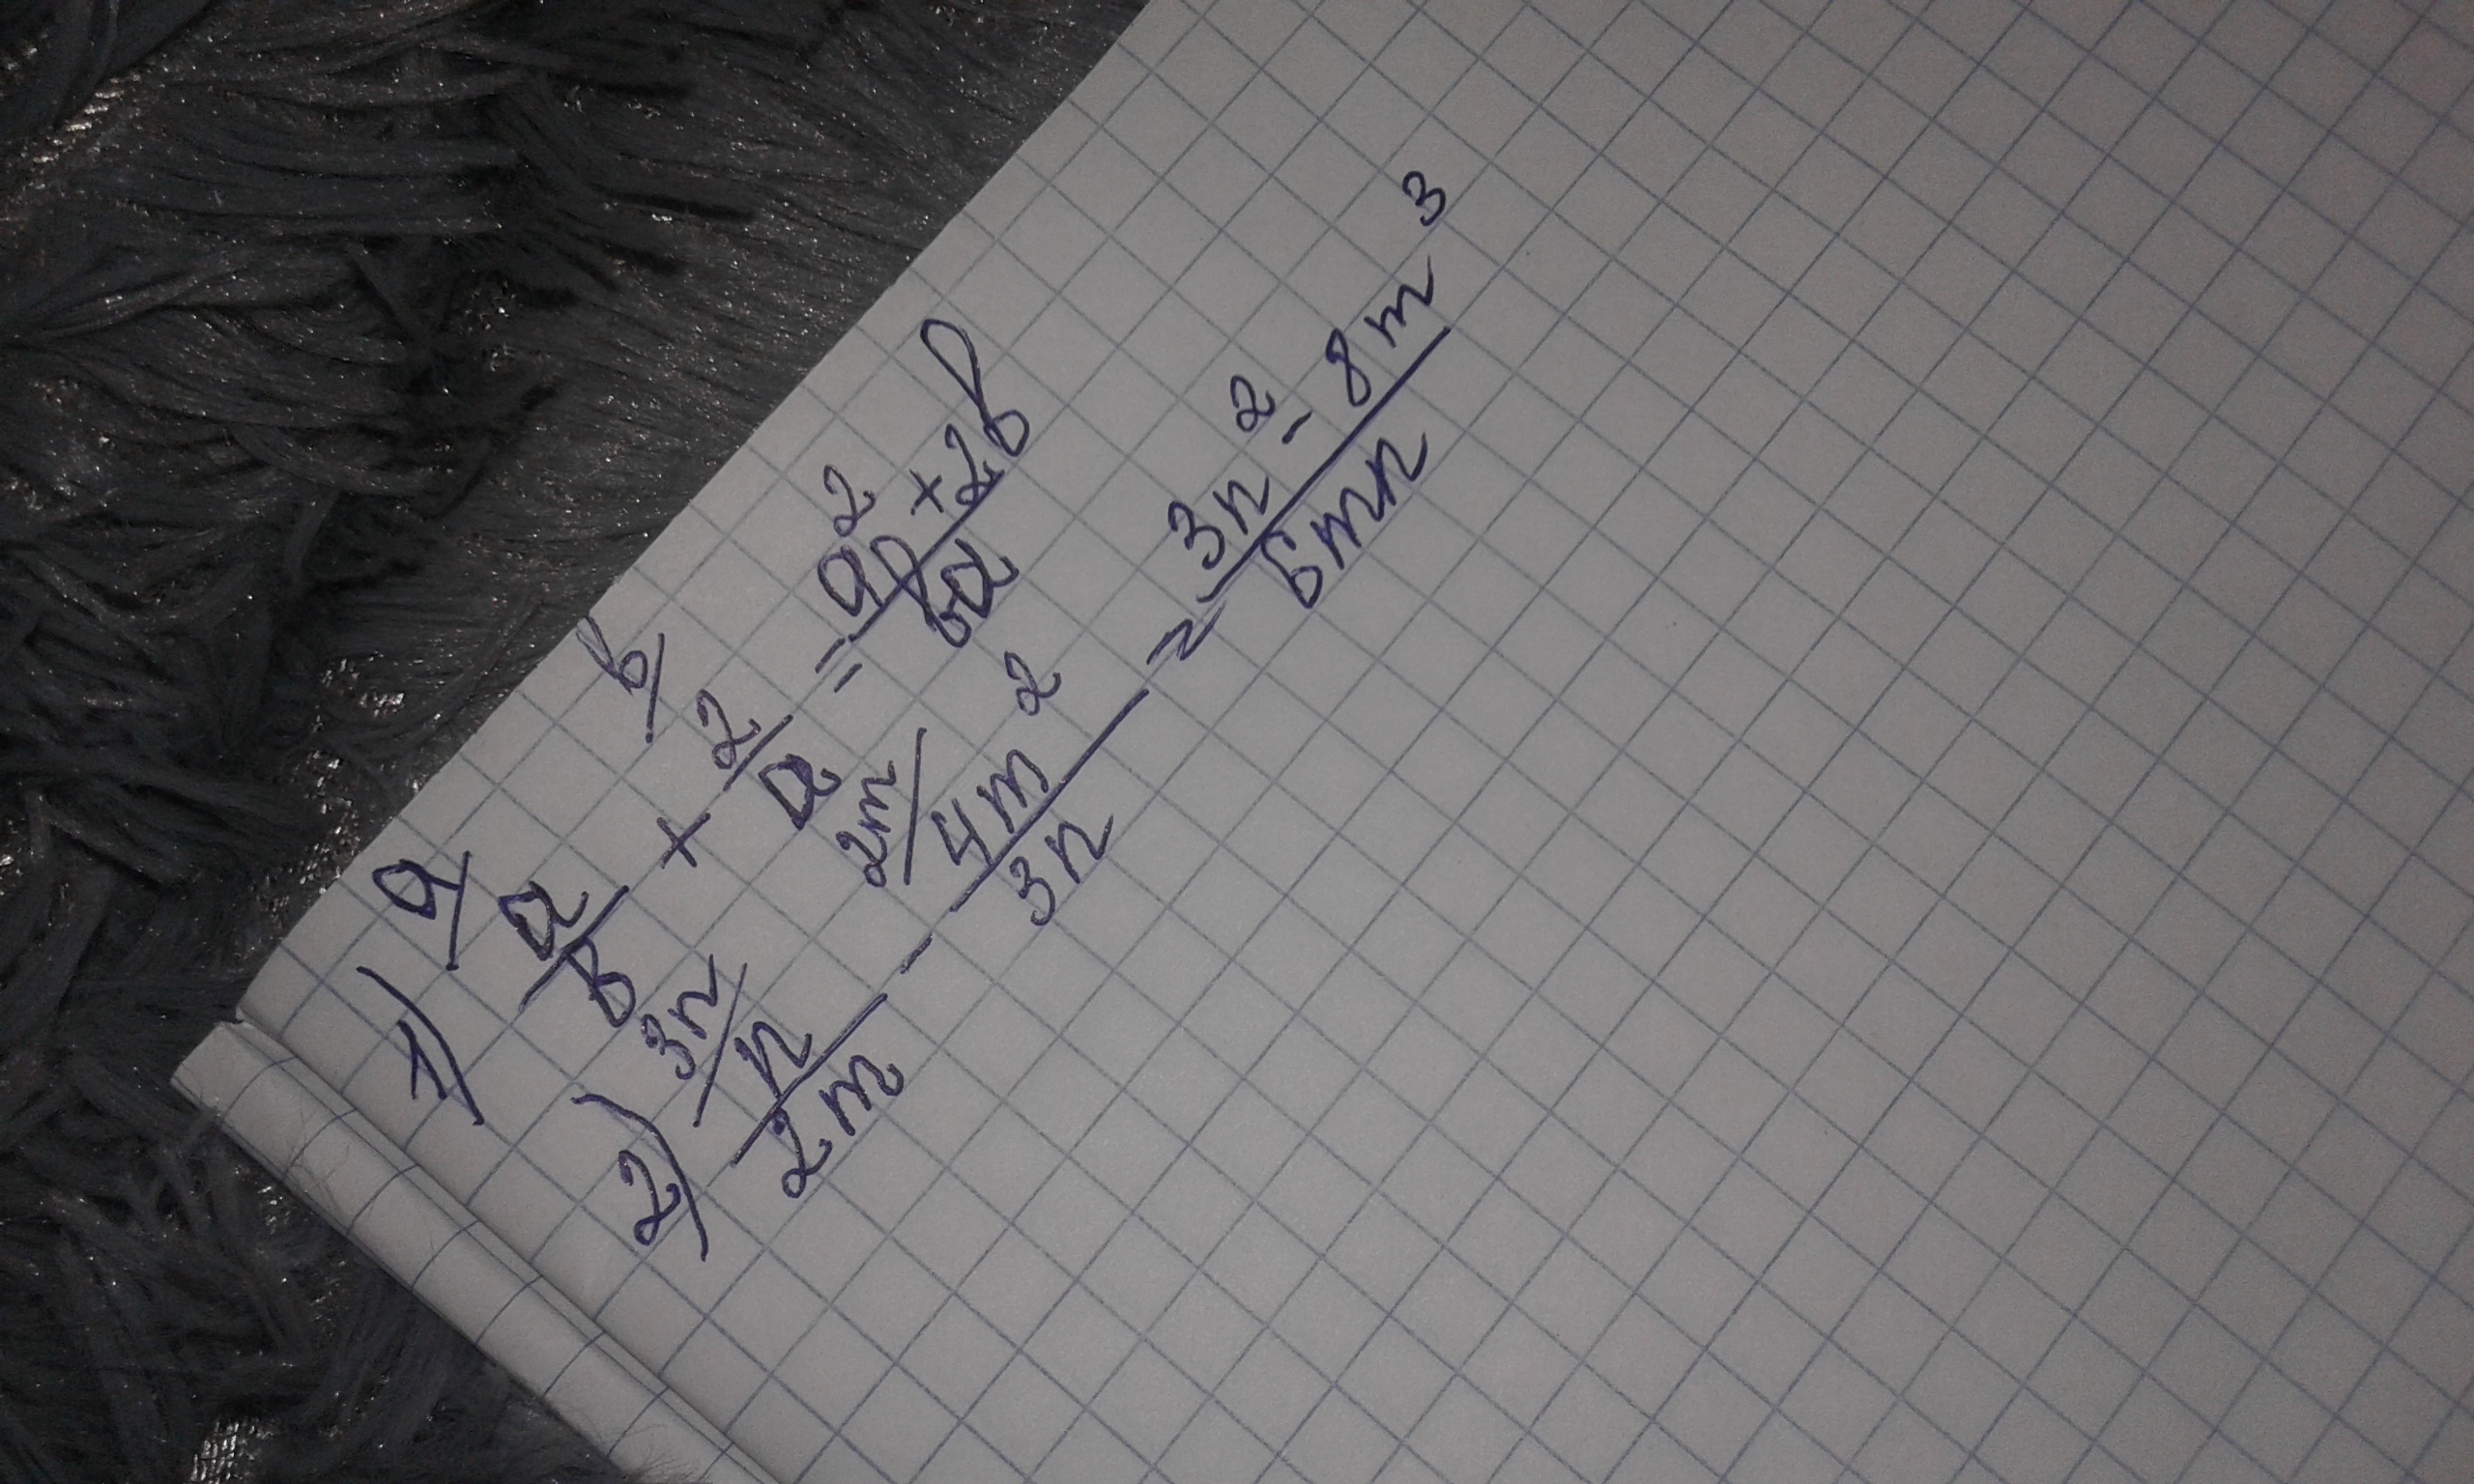 1) a/ a/b + b/ 2/a = a² + 2b / ba
2) 3n/ n/2m - 2m/ 4m²/3n = 3n² - 8m³ / 6mn